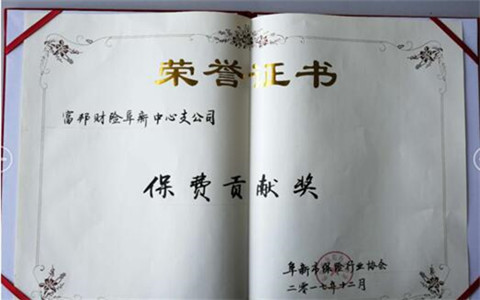 荣誉证书
富邦财险阜新中心支公司
保费贡献奖
阜新市保险行业协会
二零一七年十二月